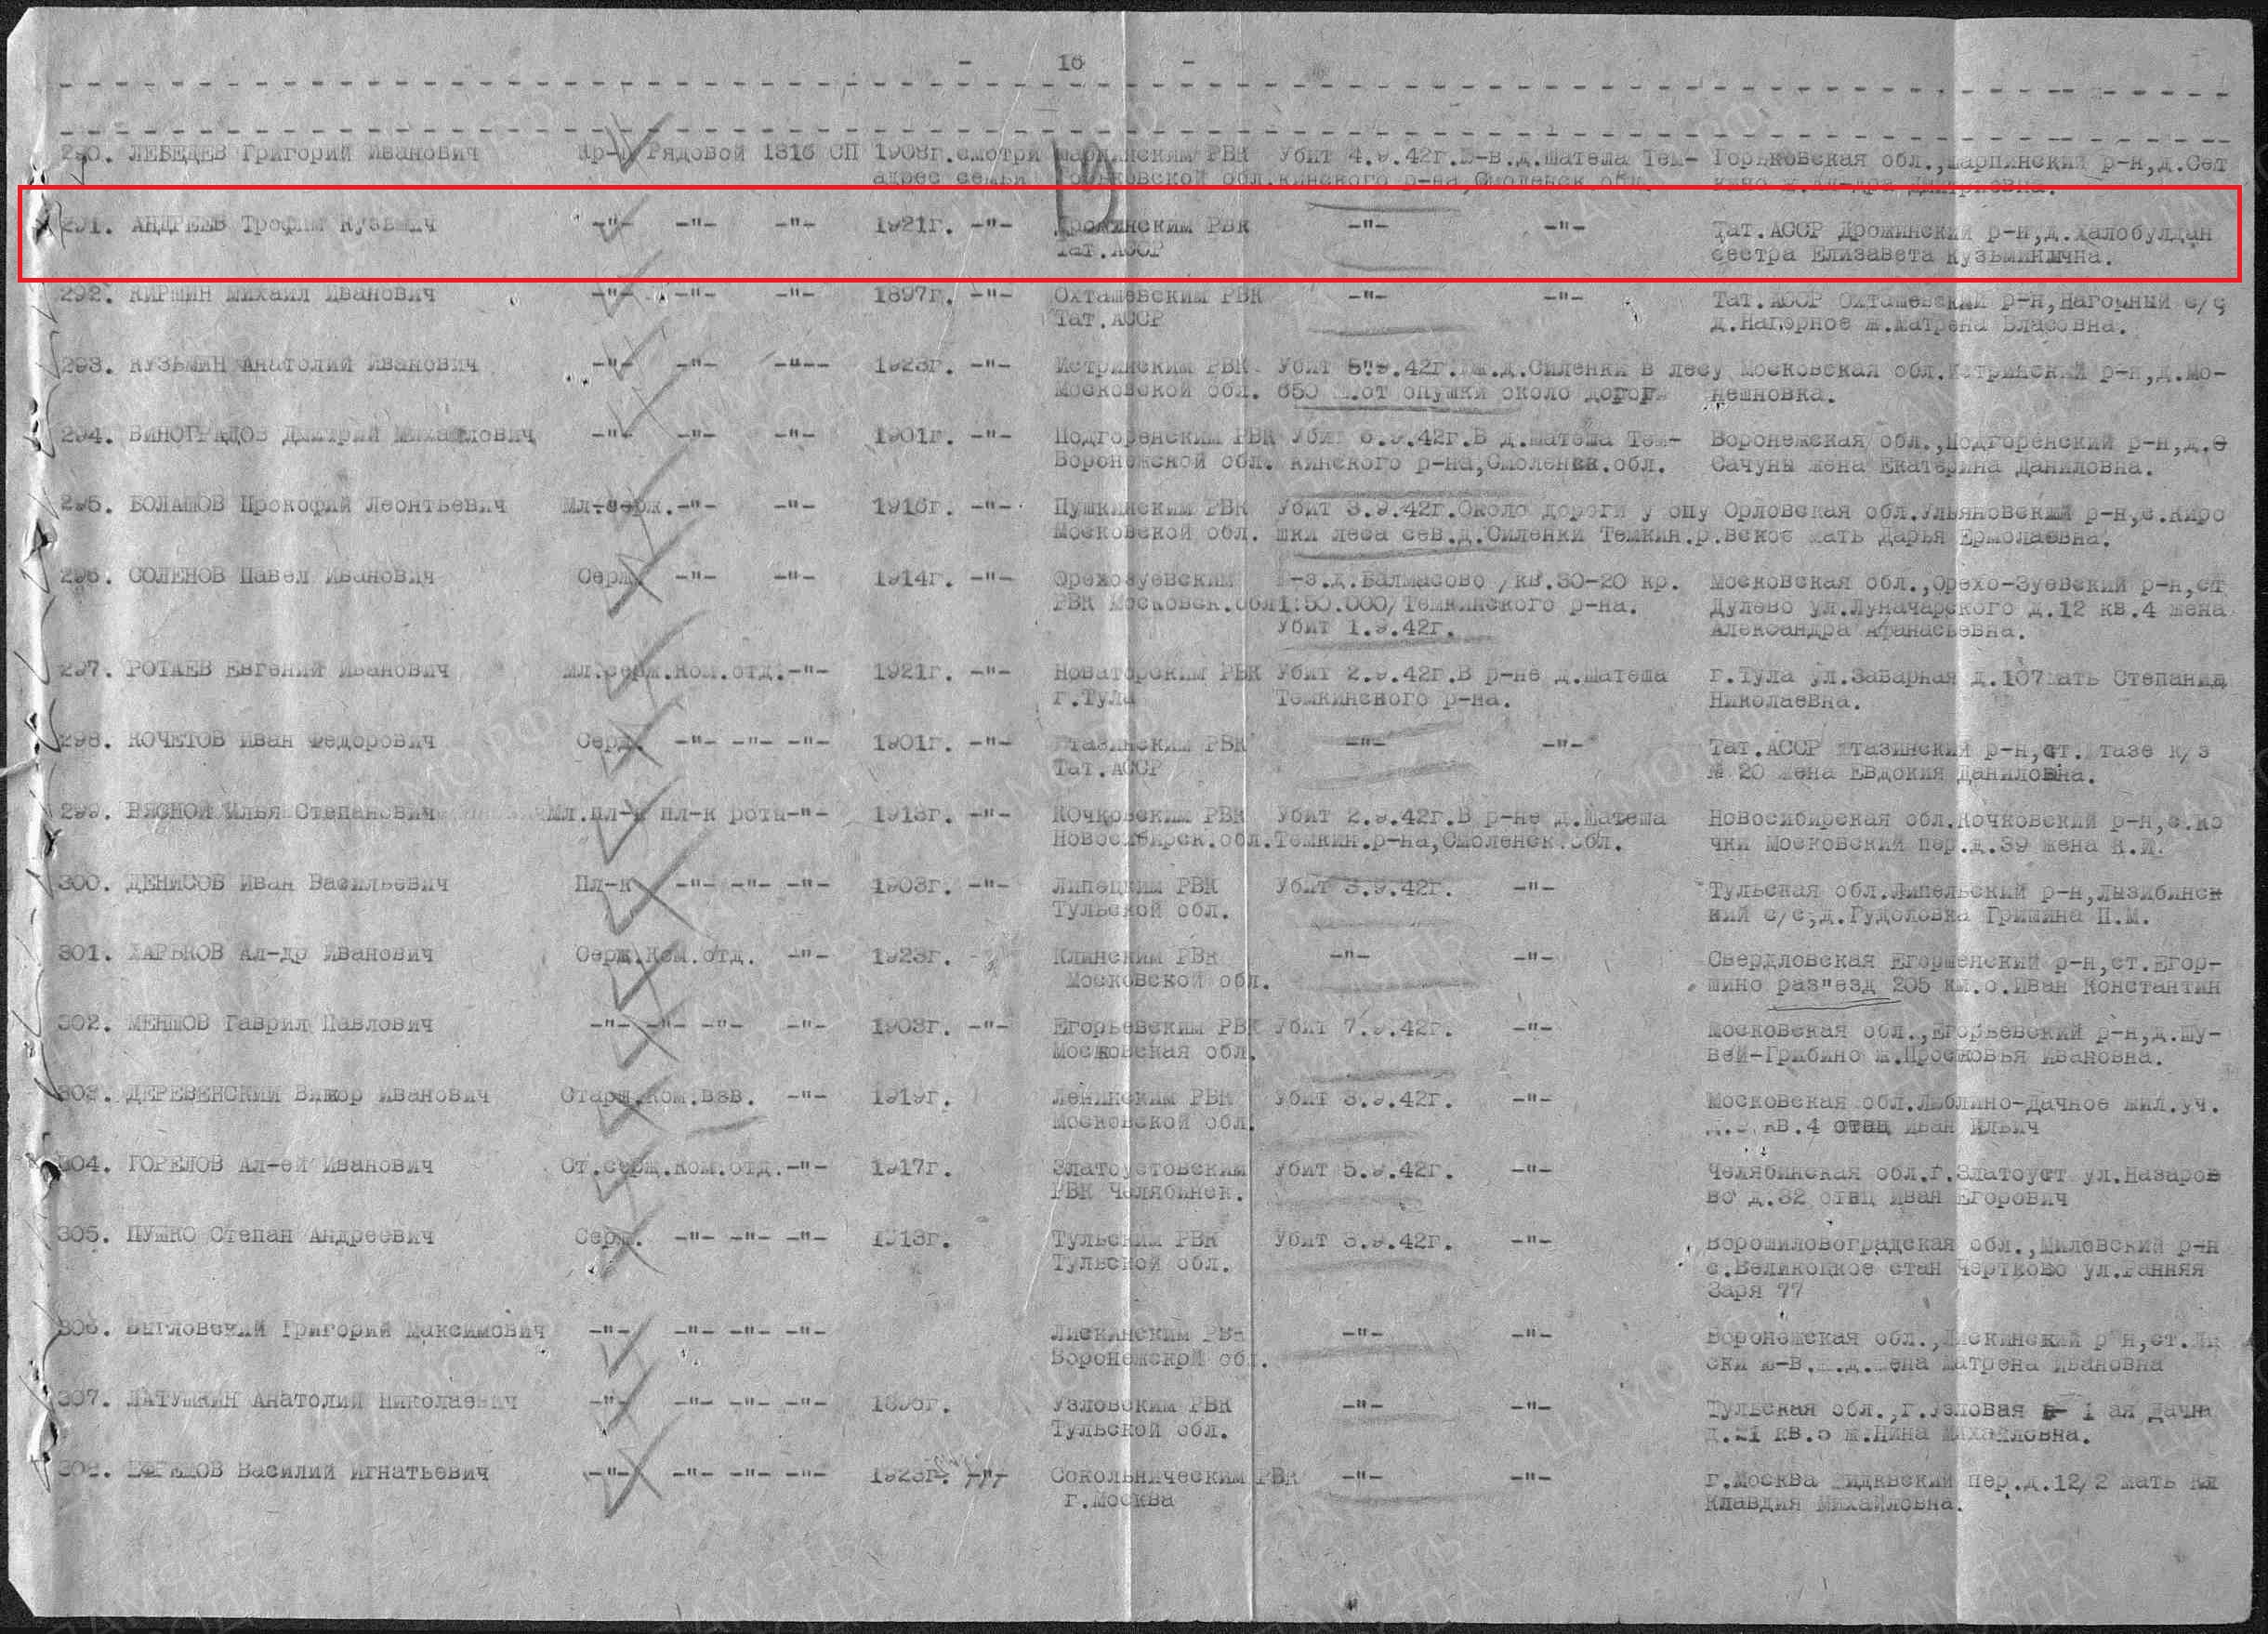 - 16 -
290. ЛЕБЕДЕВ Григорий Иванович Кр-ц Рядовой 1316 СП 1908г.смотри Шарпинским РВК Убит 4.9.42г.В-в.д.Шатеша Тем- Горьковская обл.,Шарпинский р-н,д.Сет
адрес семьи Горьковской обл.кинского р-на,Смоленск обл. кино ж.Ал-дра Дмитриевна.
291. АНДРЕЕВ Трофим Кузьмич -"- -"- -"- 1921г. -"- Дрожинским РВК -"- -"- Тат.АССР Дрожинский р-н,д.Халобулдан
Тат.АССР сестра Елизавета Кузьминична.
292. КИРШИН Михаил Иванович -"- -"- -"- 1897г. -"- Охташевским РВК -"- -"- Тат.АССР Охташевский р-н,Нагорный с/с
Тат.АССР д.Нагорное ж.Матрена Власовна.
293. КУЗЬМИН Анатолий Иванович -"- -"- -"-- 1923г. -"- Истринским РВК Убит 5.9.42г. д.Силенки в лесу Московская обл.Истринский р-н,д.Мо-
Московской обл. 650 м.от опушки около дороги нешновка.
294. ВИНОГРАДОВ Дмитрий Михайлович -"- -"- -"- 1901г. -"- Подгоренским РВК Убит 6.9.42г.В д.Шатеша Тем- Воронежская обл.,Подгоренский р-н,д.С
Воронежской обл. кинского р-на,Смоленск.обл. Сачуны жена Екатерина Даниловна.
295. БОЛАШОВ Прокофий Леонтьевич Мл-серж.-"- -"- 1916г. -"- Пушкинским РВК Убит 3.9.42г.Около дороги у опу Орловская обл.Ульяновский р-н,с.Киро
Московской обл. шки леса сев.д.Силенки Темкин.р.вское мать Дарья Ермолаевна.
296. СОЛЕНОВ Павел Иванович Серж. -"- -"- 1914г. -"- Орехозуевским -з.д.Валмасово /кв.30-20 кр. Московская обл.,Орехо-Зуевский р-н,ст
РВК Московск.обл 1:50.000/Темкинского р-на. Дулево ул.Луначарского д.12 кв.4 жена
Убит 1.9.42г. Александра Афанасьевна.
297. РОТАЕВ Евгений Иванович Мл.серж.ком.отд.-"- 1921г. -"- Новаторским РВК Убит 2.9.42г.В р-не д.Шатеша г.Тула ул.Заварная д.107мать Степанид
г.Тула Темкинского р-на. Николаевна.
298. КОЧЕТОВ Иван Федорович Серж. -"- -"- -"- 1901г. -"- тазинским РВК -"- -"- Тат.АССР тазинский р-н,ст. тазе к/з
Тат.АССР № 20 жена Евдокия Даниловна.
299. ВЯСНОЙ Илья Степанович Мл.пл-к пл-к роты-"- 1913г. -"- Кочковским РВК Убит 2.9.42г.В р-не д.Шатеша Новосибирская обл.Кочковский р-н,с.Ко
Новосибирск.обл.Темкин.р-на,Смоленск.обл. чки Московский пер.д.39 жена К.И.
300. ДЕНИСОВ Иван Васильевич Пл-к -"- -"- -"- 1903г. -"- Липецким РВК Убит 3.9.42г. -"- Тульская обл.Липельский р-н,Лызибинск
Тульской обл. кий с/с,д.Гудоловка Гришина П.М.
301. ХАРЬКОВ Ал-др Иванович Серж.Ком.отд. -"- 1923г. Клинским РВК -"- -"- Свердловская Егоршенский р-н,ст.Егор-
Московской обл. шино раз"езд 205 км.о.Иван Константин
302. МЕНШОВ Гаврил Павлович -"- -"- -"- -"- 1903г. -"- Егорьевским РВК Убит 7.9.42г. -"- Московская обл.,Егорьевский р-н,д.Шу-
Московская обл. вей-Грибино ж.Просковья Ивановна.
303. ДЕРЕВЕНСКИЙ Виктор Иванович Старш.Ком.взв. -"- 1919г. Ленинским РВК Убит 3.9.42г. -"- Московская обл.Люблино-Дачное жил.уч.
Московской обл. кв.4 отец Иван Ильич
304. ГОРЕЛОВ Ал-ей Иванович Ст.серж.ком.отд.-"- 1917г. Златоустовским Убит 5.9.42г. -"- Челябинская обл.г.Златоуст ул.Назаров
РВК Челябинск. во д.32 отец Иван Егорович
305. ПУШКО Степан Андреевич Серж. -"- -"- -"- 1913г. Тульским РВК Убит 3.9.42г. -"- Ворошиловоградская обл.,Милевский р-н
Тульской обл. с.Великоцкое стан Чертково ул.Ранняя
Заря 77
306. ВЫГЛОВСКИЙ Григорий Максимович -"- -"- -"- -"- Лискинским РВК -"- -"- Воронежская обл.,Лискинский р-н,ст.Ли
Воронежской обл. ски Ю-В.ж.д.жена Матрена Ивановна
307. ЛАТУШКИН Анатолий Николаевич -"- -"- -"- -"- 1896г. Узловским РВК -"- -"- Тульская обл.,г.Узловая 1 ая Дачна
Тульской обл. д.21 кв.5 ж.Нина Михайловна.
308. ЕФРЕМОВ Василий Игнатьевич -"- -"- -"- -"- 1923г. -"- Сокольническим РВК -"- -"- г.Москва пер.д.12/2 мать Кл
г.Москва Клавдия Михайловна.